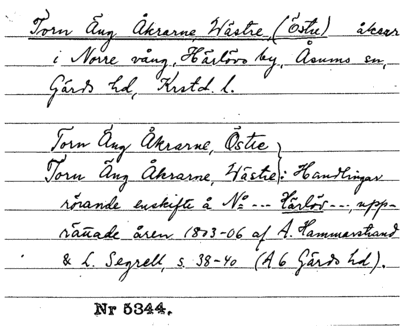 Torn Äng Åkrarne, Wästre, (Östre) åkrar
i Norre vång, Härlövs by, Åsums sn,
Gärds hd, Krstd. l.
Torn Äng Åkrarne, Östre }
Torn Äng Åkrarne, Wästre } : Handlingar
rörande enskifte å No --- Härlöv ---, upp-
rättade åren 1803-06 af A. Hammarstrand
& L. Segrell, s. 38-40 (A6 Gärds hd).
Nr 5344.